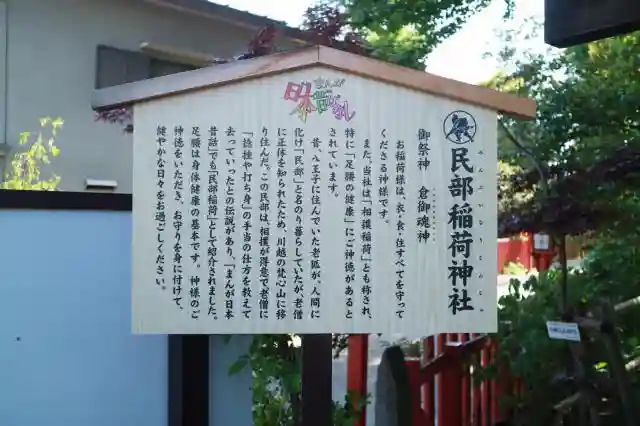 まんが
日本昔ばなし
民部稲荷神社
みんぶいなりじんじゃ
御祭神 倉御魂神
お稲荷様は、衣・食・住すべてを守って
くださる神様です。
また、当社は「相撲稲荷」とも称され、
特に「足腰の健康」にご神徳があると
されています。
昔、八王子に住んでいた老狐が、人間に
化け「民部」と名のり暮らしていたが、老僧
に正体を知られたため、川越の梵心山に移
り住んだ。この民部は、相撲が得意で老僧に
「捻挫や打ち身」の手当の仕方を教えて
去っていったとの伝説があり、「まんが日本
昔話」でも「民部稲荷」として紹介されました。
足腰は身体健康の基本です。神様のご
神徳をいただき、お守りを身に付けて、
健やかな日々をお過ごしください。